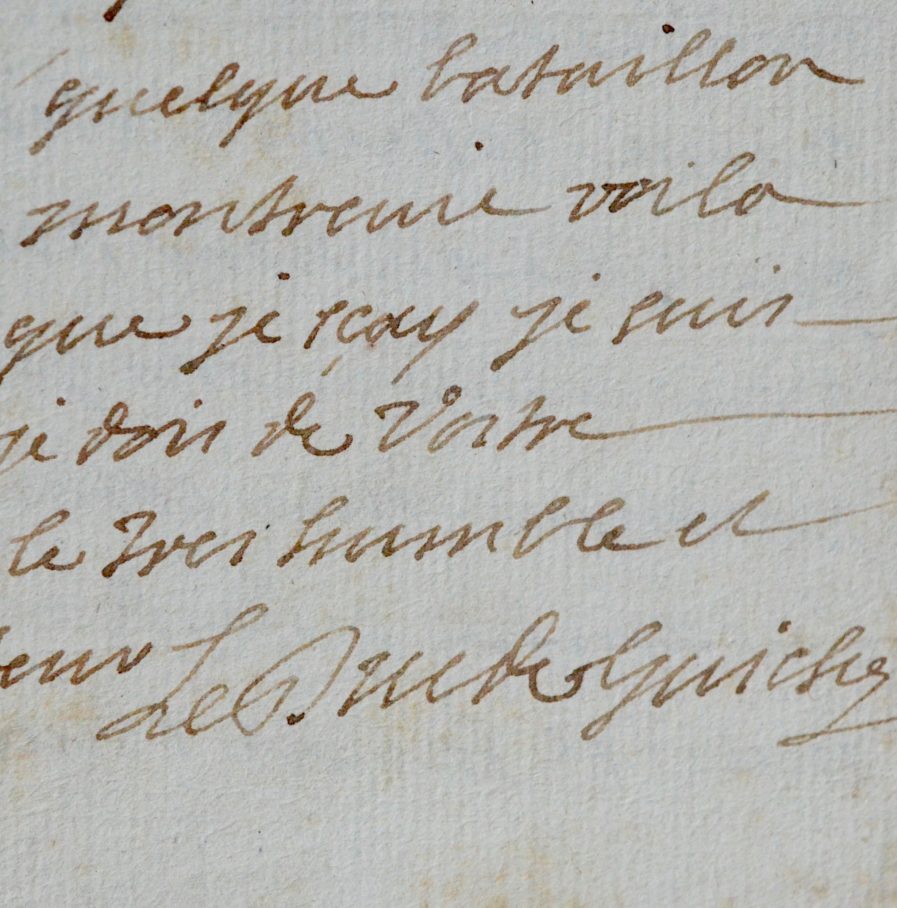 quelque bataillon
montreuïe voila
que je sçay je suis
je dois de Vostre
le tres humble et
teur Le Duc de Guiche